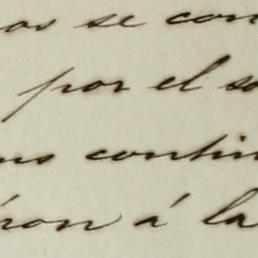 os se con
por el so
no contin
ron á la